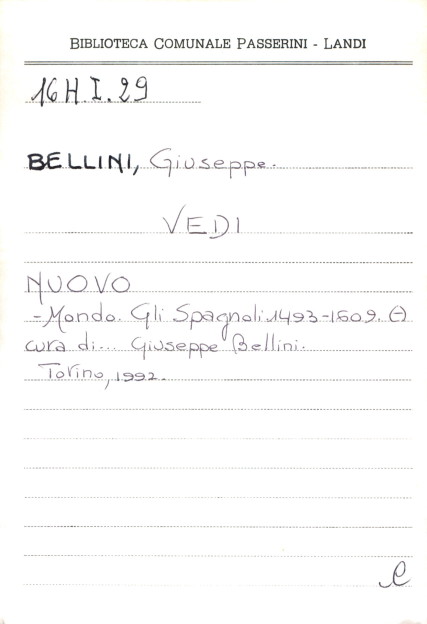 BIBLIOTECA COMUNALE PASSERINI - LANDI
16 H. I. 29
BELLINI, Giuseppe.
VEDI
NUOVO
-Mondo. Gli Spagnoli. 1493-1609. (-)
cura di... Giuseppe Bellini.
Torino, 1992.